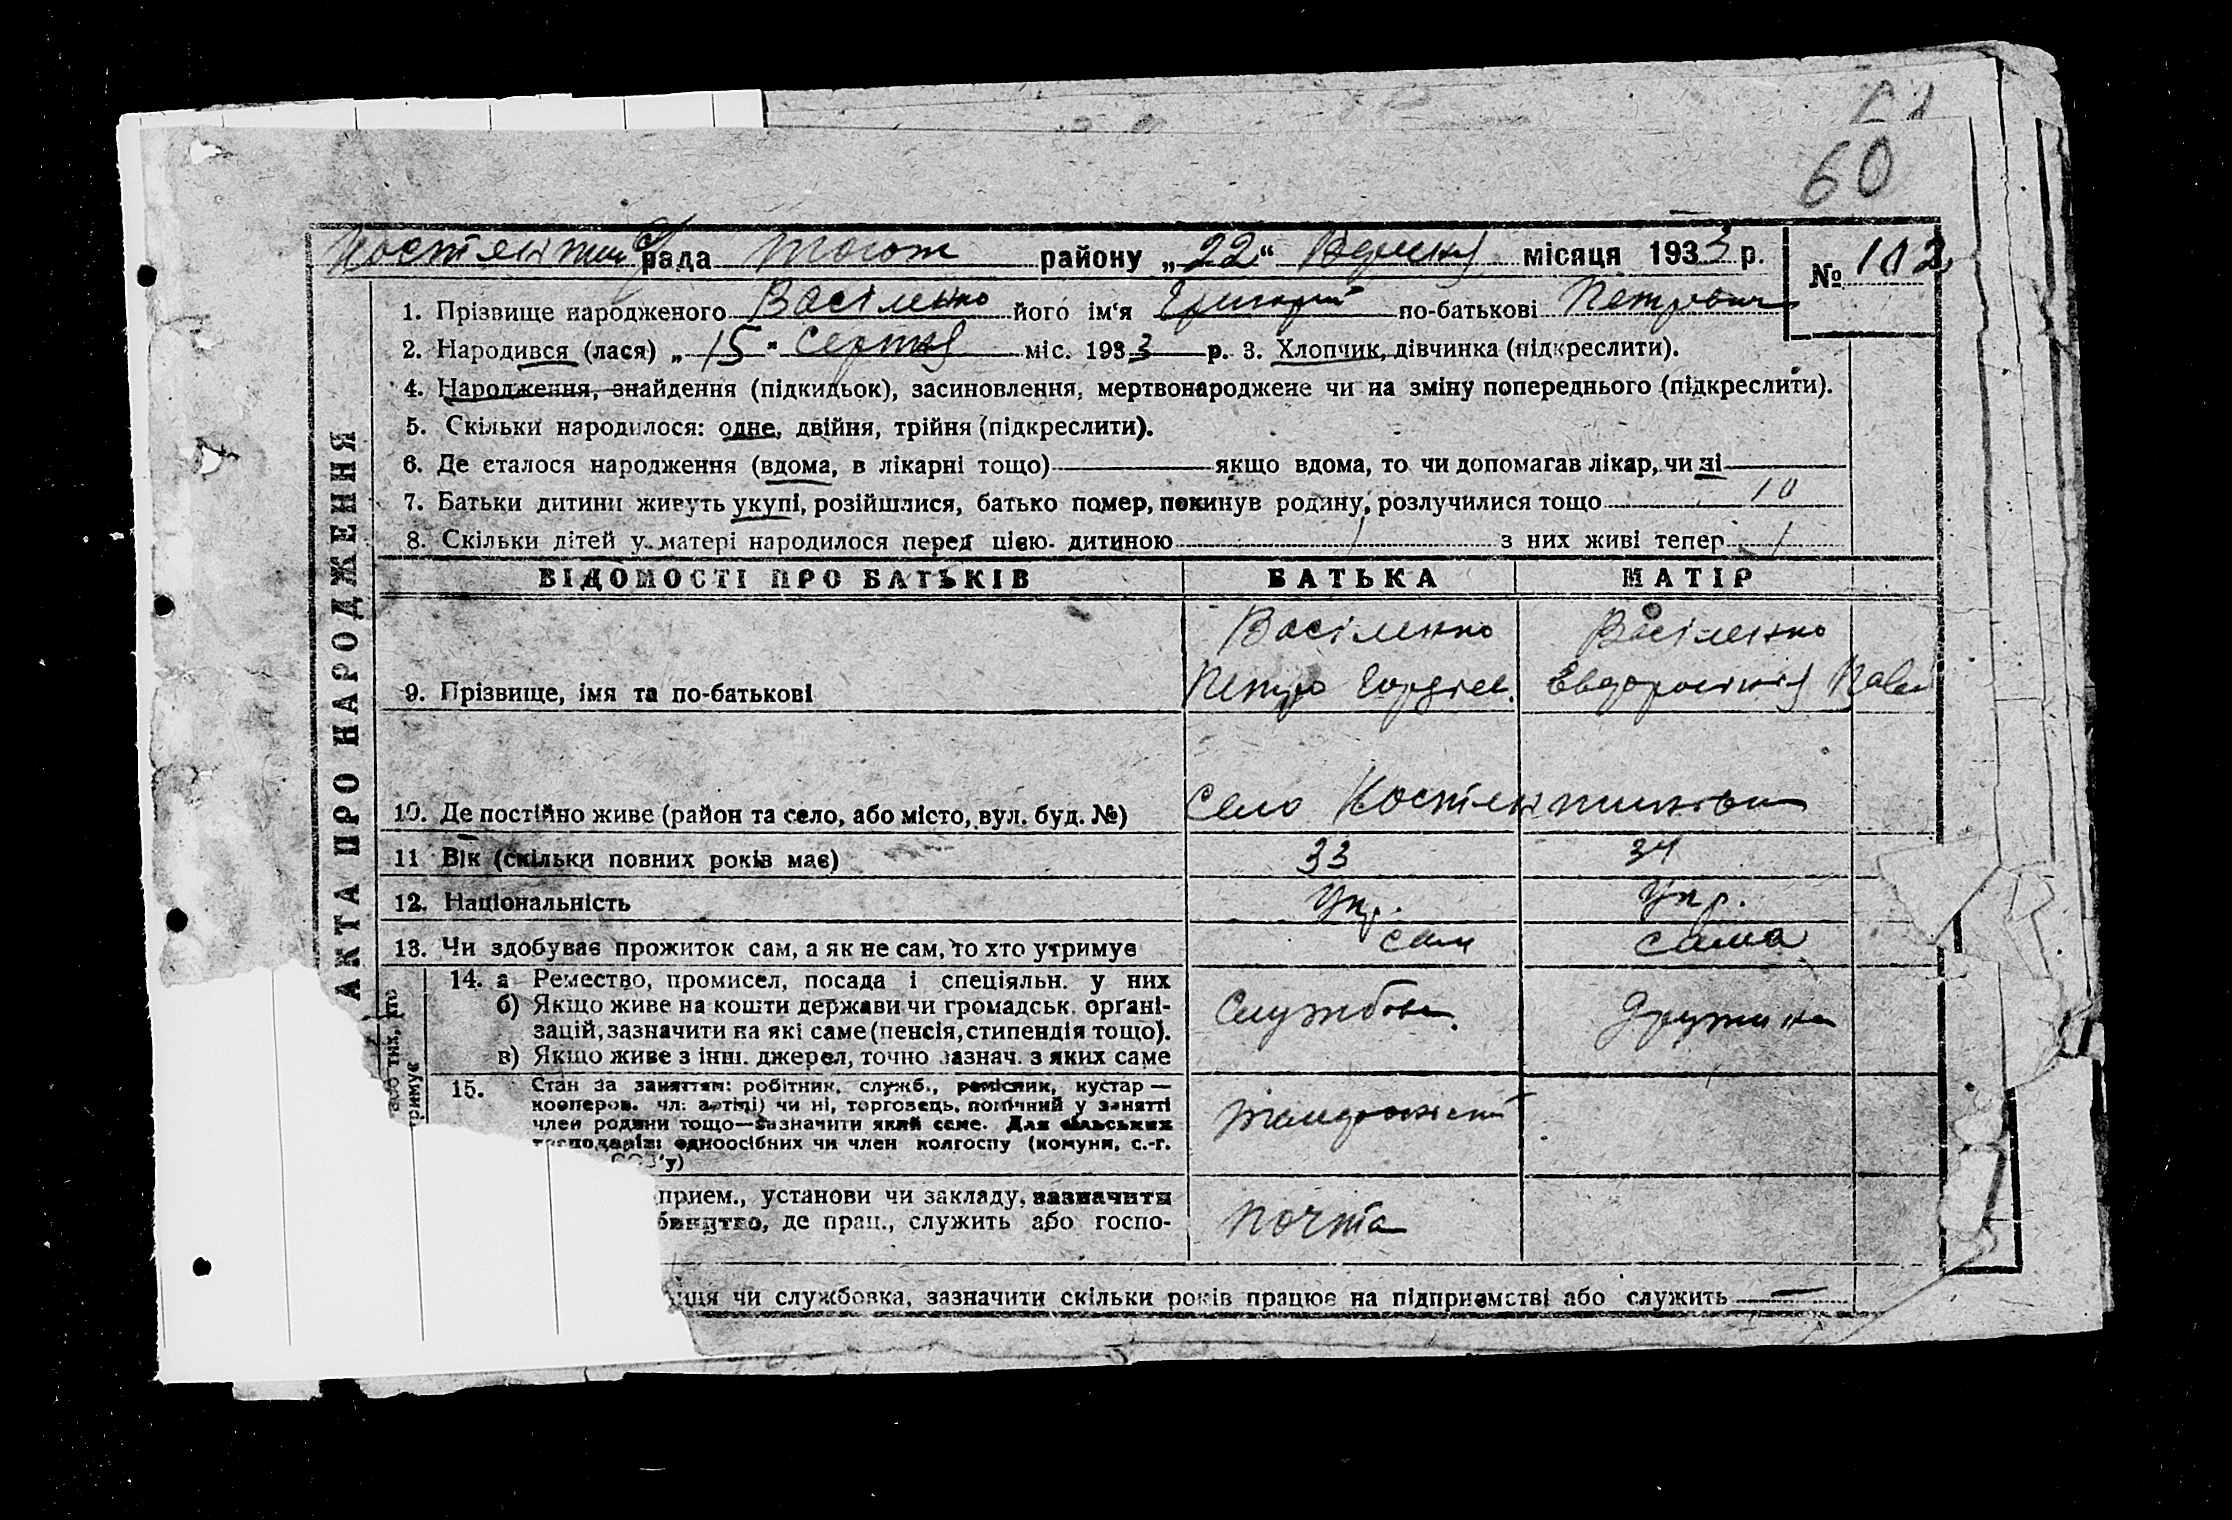 60
рада район­у „22“ місяця 1933 р. № 102
1. Прізвище народженого Васіленко його ім‘я Григорій по-батькові Петрович
2. Народився (лася) „15“ серпня міс. 1933 р. 3. Хлопчик, дівчинка (підкреслити).
4. Народження, знайдення (підкидьок), засиновлення, мертвонароджене чи на зміну попереднього (підкреслити).
5. Скільки народилося: одне, двійня, трійня (підкреслити).
6. Де сталося народження (вдома, в лікарні тощо) якщо вдома, то чи допомагав лікар, чи ні
7. Батьки дитини живуть укупі, розійшлися, батько помер, покинув родину, розлучилися тощо 10
8. Скільки дітей у матері народилося перед цією дитиною 1 з них живі тепер 1
АКТА ПРО НАРОДЖЕННЯ
ВІДОМОСТІ ПРО БАТЬКІВ БАТЬКА МАТІР
Васіленко Васіленко
9. Прізвище, імя та по-батькові Петро Гордієв.
10. Де постійно живе (район та село, або місто, вул. буд. №) Село
11 Вік (скільки повних років має) 33 34
12. Національність Укр. Укр.
13. Чи здобуває прожиток сам, а як не сам, то хто утримує сам сама
14. а Ремество, промисел, посада і спеціяльн. у них
б) Якщо живе на кошти держави чи громадськ. органі-
зацій, зазначити на які саме (пенсія, стипендія тощо). Службов. дружина
в) Якщо живе з інш. джерел, точно зазнач. з яких саме
15. Стан за заняттям: робітник, служб., ремісник, кустар —
кооперов. чл. артілі) чи ні, торговець, помічний у занятті
член родини тощо—зазначити який саме. Для сільських
господарів: одноосібних чи член колгоспу (комуни, с.-г.
СОЗ'у)
прием., установи чи закладу, зазначити
бництво, де прац., служить або госпо- почта
иця чи службовка, зазначити скільки років працює на підприємстві або служить —